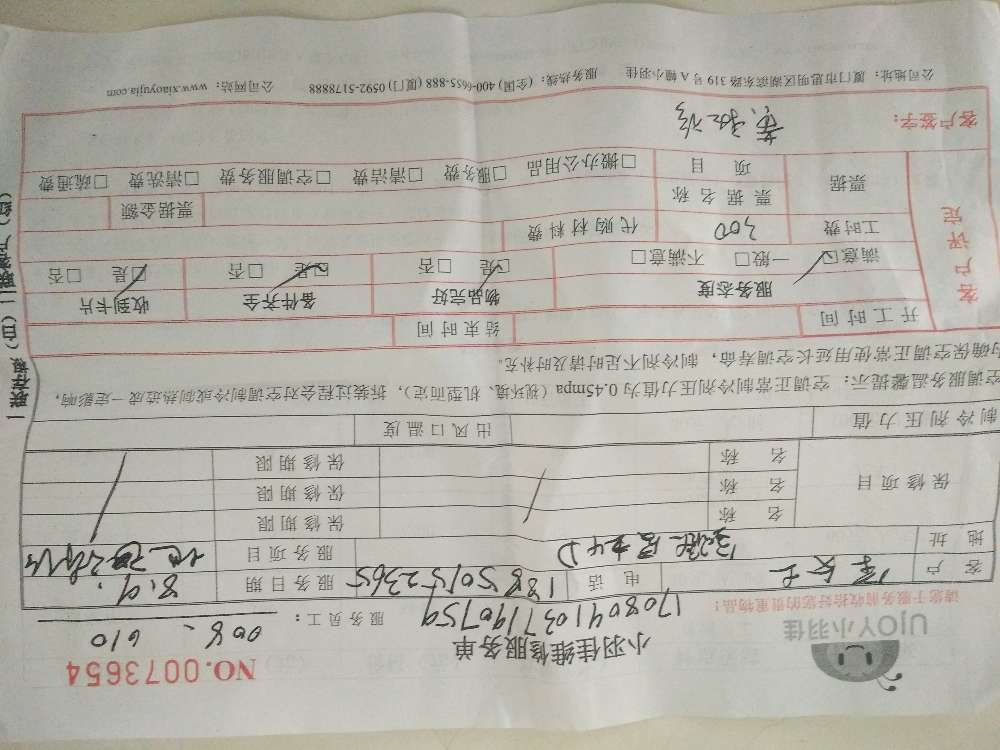 UJOY小羽佳
小羽佳维修服务单
NO.0073654
请您于服务前收拾好您的贵重物品:
1708041037190759
服务员工:
008、
010
客户
女士
电话
18850152365
服务日期
8.9.
地址
服务项目
保修项目
名称
保修期限
名称
保修期限
名称
保修期限
制冷剂压力值
出风口温度
空调服务温馨提示: 空调正常制冷剂压力值为0.45mpa (视环境、机型而定), 拆装过程会对空调制冷或制热造成一定影响,
为确保空调正常使用延长空调寿命, 制冷剂不足时请及时补充。
开工时间
结束时间
客户评定
服务态度
物品完好
备件齐全
收到卡片
满意☑ 一般□ 不满意□
☑是 □否
☑是 □否
☑是 □否
工时费
300
代购材料费
票据
票据名称
票据金额
项目
□搬办公用品 □服务费 □清洁费 □空调服务费 □清洗费 □疏通费
客户签字:
公司地址: 厦门市思明区湖滨东路319号A幢小羽佳 服务热线: (全国) 400-6655-888 (厦门) 0592-5178888 公司网站: www.xiaoyujia.com
一联存根 (白) 二联客户 (红)